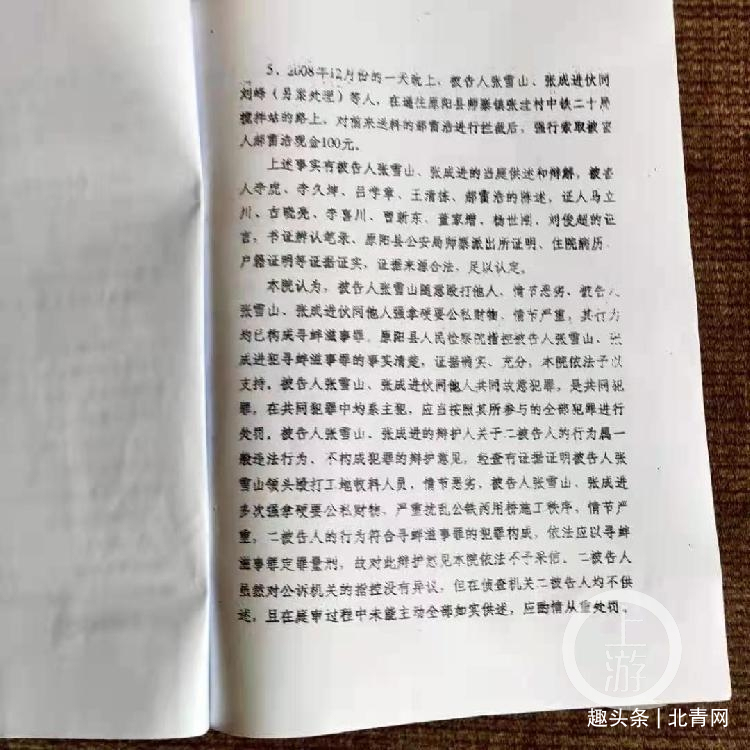 5、2008年12月份的一天晚上，被告人张雪山、张成进伙同
刘峰（另案处理）等人，在通往原阳县师寨镇张洼村中铁二十局
搅拌站的路上，对前来送料的郝雷浩进行拦截后，强行索取被害
人郝雷浩现金100元。
上述事实有被告人张雪山、张成进的当庭供述和辩解，被害
人李虎、李久坤、吕学章、王清栋、郝雷浩的陈述，证人马立
川、古晓亮、李喜川、曹新东、董家增、杨世刚、刘俊超的证
言，书证辨认笔录、原阳县公安局师寨派出所证明、住院病历、
户籍证明等证据证实，证据来源合法，足以认定。
本院认为，被告人张雪山随意殴打他人、情节恶劣、被告人
张雪山、张成进伙同他人强拿硬要公私财物、情节严重，其行为
均已构成寻衅滋事罪。原阳县人民检察院指控被告人张雪山、张
成进犯寻衅滋事罪的事实清楚，证据确实、充分，本院依法予以
支持。被告人张雪山、张成进伙同他人共同故意犯罪，是共同犯
罪，在共同犯罪中均系主犯，应当按照其所参与的全部犯罪进行
处罚。被告人张雪山、张成进的辩护人关于二被告人的行为属一
般违法行为、不构成犯罪的辩护意见，经查有证据证明被告人张
雪山领头殴打工地收料人员，情节恶劣，被告人张雪山、张成进
多次强拿硬要公私财物、严重扰乱公铁两用桥施工秩序，情节严
重，二被告人的行为符合寻衅滋事罪的犯罪构成，依法应以寻衅
滋事罪定罪量刑，故对此辩护意见本院依法不予采信。二被告人
虽然对公诉机关的指控没有异议，但在侦查机关二被告人均不供
述，且在庭审过程中未能主动全部如实供述，应酌情从重处罚。
上游
趣头条 | 北青网